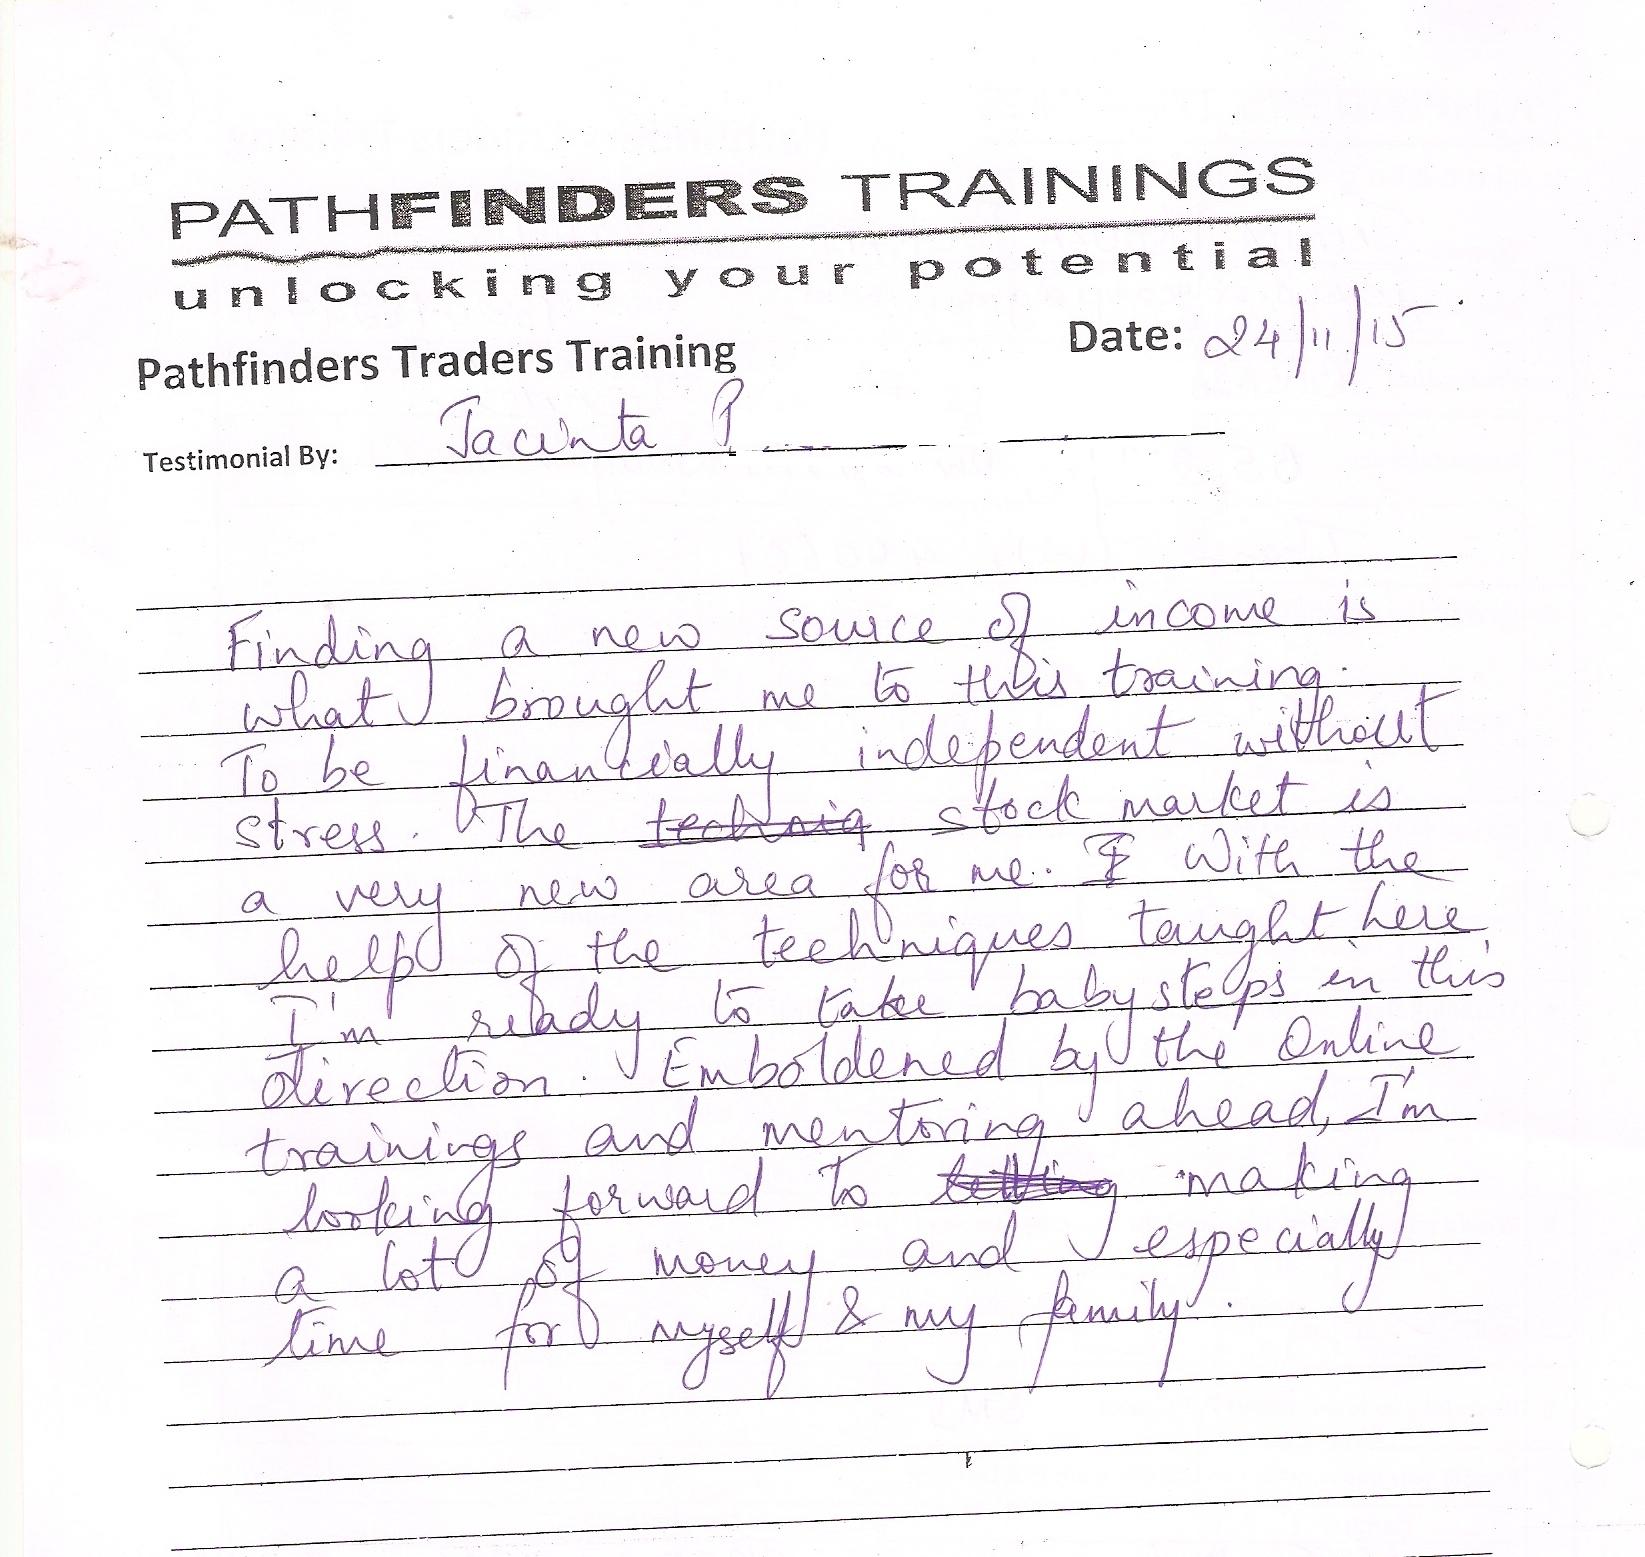 PATHFINDERS TRAININGS
unlocking your potential
Pathfinders Traders Training
Date: 24/11/15
Testimonial By: Jacinta P
Finding a new source of income is
what brought me to this training.
To be financially independent without
stress. The techniq stock market is
a very new area for me. I With the
help of the techniques taught here
I'm ready to take baby steps in this
direction. Emboldened by the Online
trainings and mentoring ahead, I'm
looking forward to making
a lot of money and especially
time for myself & my family.